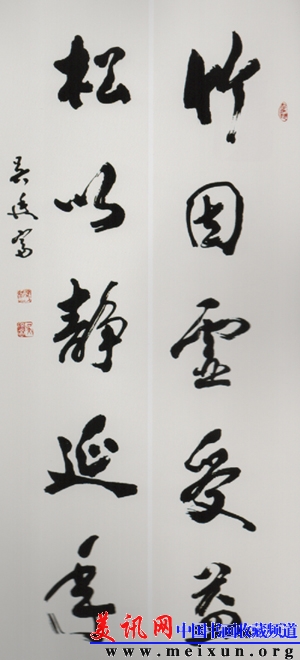 竹因虚受益
松以静延年
美讯网 中国书画收藏频道
www.meixun.org